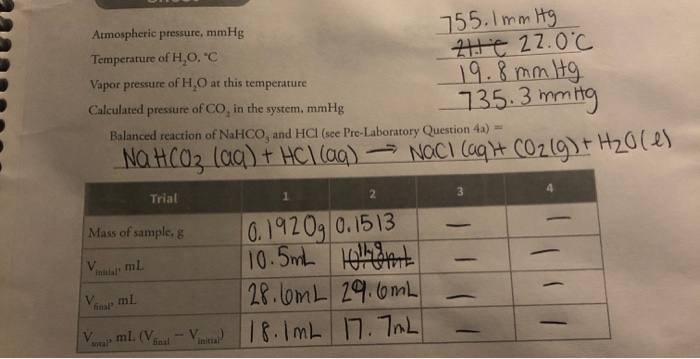 Atmospheric pressure, mmHg 755.1mmHg
Temperature of H₂O, °C 21.1°C 22.0°C
Vapor pressure of H₂O at this temperature 19.8 mmHg
Calculated pressure of CO₂ in the system, mmHg 735.3 mmHg
Balanced reaction of NaHCO₃ and HCl (see Pre-Laboratory Question 4a) =
NaHCO3 (aq) + HCl(aq) → NaCl (aq)+ CO2(g)+ H2O(l)
Trial 1 2 3 4
Mass of sample, g 0.1920g 0.1513 — —
V initial, mL 10.5mL — —
V final, mL 28.6mL 29.6mL — —
V total, mL (V final − V initial) 18.1mL 17.7mL — —